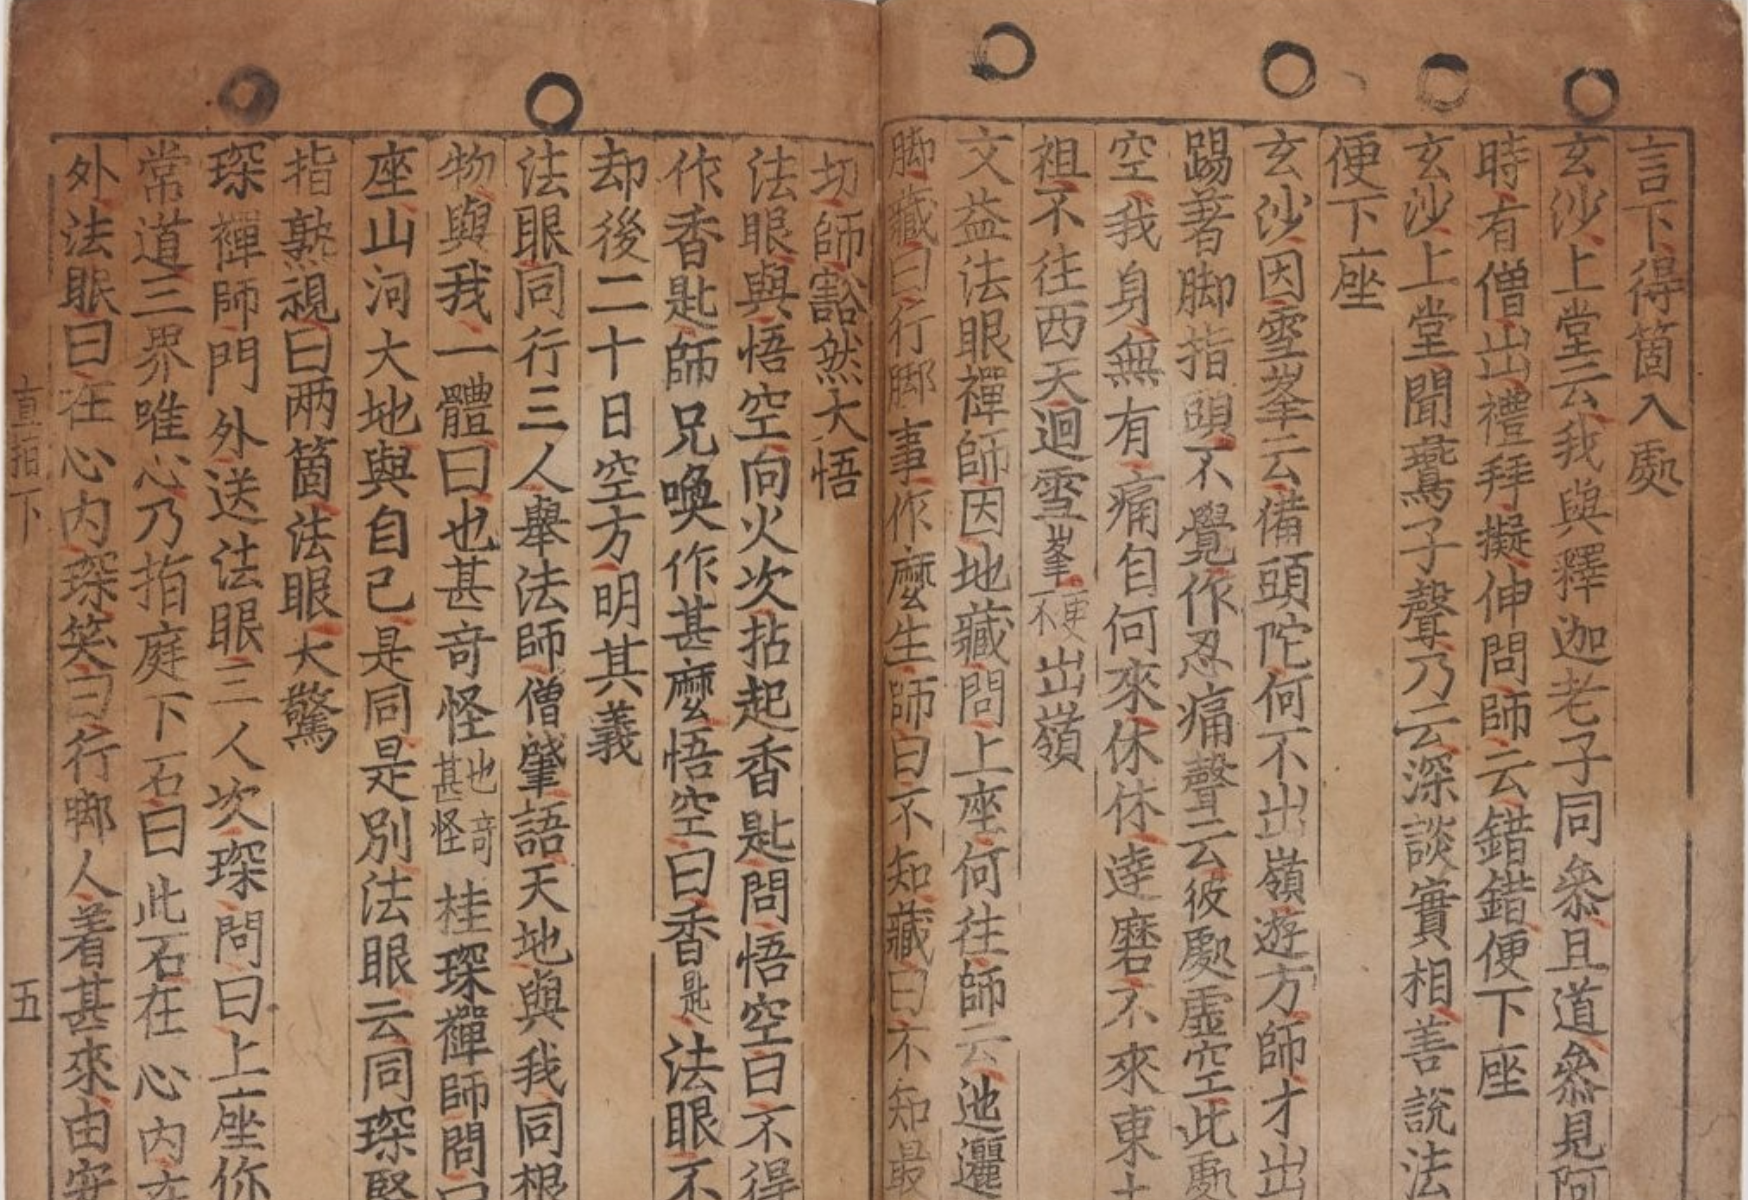 言下得箇入處
玄沙上堂云我與釋迦老子同叅且道叅見阿
時有僧出禮拜擬伸問師云錯錯便下座
玄沙上堂聞鷰子聲乃云深談實相善說法
便下座
玄沙因雪峯云備頭陀何不出嶺遊方師才出
踢著脚指頭不覺作忍痛聲云彼處虛空此處
空我身無有痛自何來休休達磨不來東土
祖不往西天迴雪峯更不出嶺
文益法眼禪師因地藏問上座何往師云迆邐
脚藏曰行脚事作麼生師曰不知藏曰不知最
切師豁然大悟
法眼與悟空向火次拈起香匙問悟空曰不得
作香匙師兄喚作甚麼悟空曰香匙法眼不
却後二十日空方明其義
法眼同行三人舉法師僧肇語天地與我同根
物與我一體曰也甚奇怪也奇甚怪桂琛禪師問曰
座山河大地與自己是同是別法眼云同琛竪
指熟視曰两箇法眼大驚
琛禪師門外送法眼三人次琛問曰上座你
常道三界唯心乃指庭下石曰此石在心内在
外法眼曰在心内琛笑曰行脚人着甚來由安
直指下
五